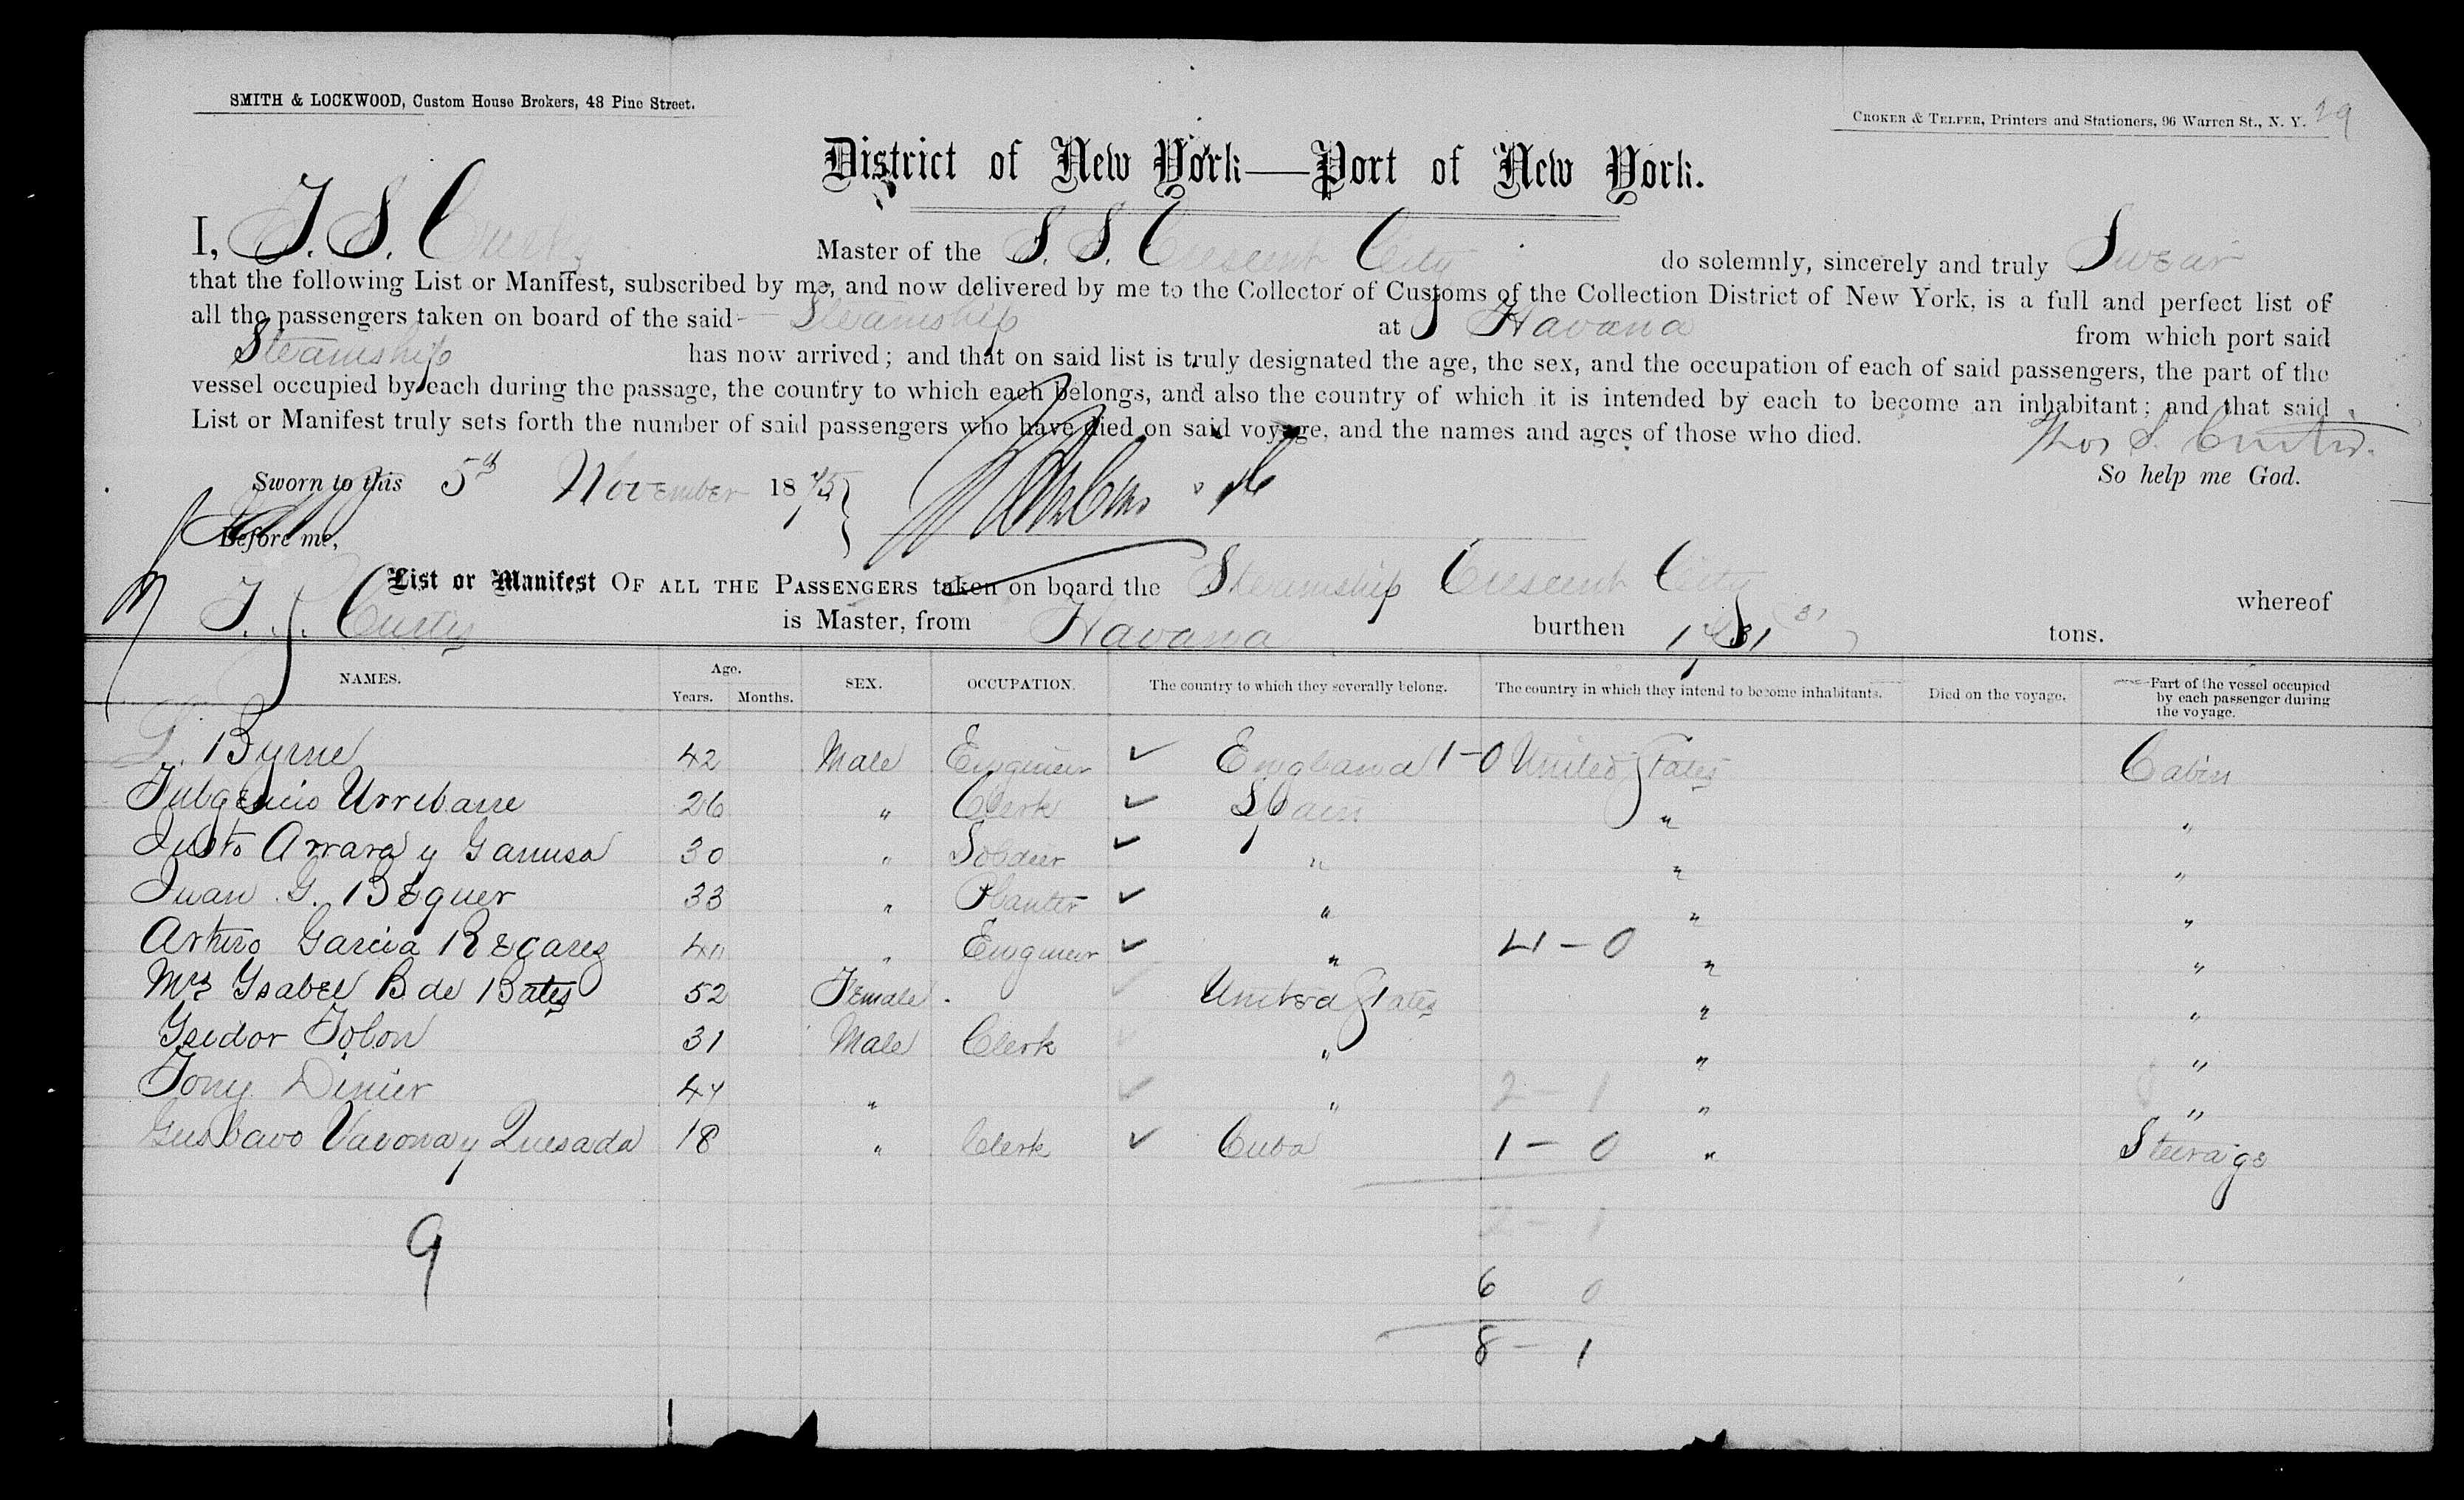 SMITH & LOCKWOOD, Custom House Brokers, 48 Pine Street.
CROKER & TELFER, Printers and Stationers, 96 Warren St., N. Y. 29
District of New York—Port of New York.
I, T. S. Curtis Master of the S. S. Crescent City do solemnly, sincerely and truly Swear
that the following List or Manifest, subscribed by me, and now delivered by me to the Collector of Customs of the Collection District of New York, is a full and perfect list of
all the passengers taken on board of the said Steamship at Havana from which port said
Steamship has now arrived; and that on said list is truly designated the age, the sex, and the occupation of each of said passengers, the part of the
vessel occupied by each during the passage, the country to which each belongs, and also the country of which it is intended by each to become an inhabitant; and that said
List or Manifest truly sets forth the number of said passengers who have died on said voyage, and the names and ages of those who died.
Thos S. Curtis.
Sworn to this 5th November 1875 So help me God.
Before me,
List or Manifest OF ALL THE PASSENGERS taken on board the Steamship Crescent City whereof
T. S. Curtis is Master, from Havana burthen tons.
NAMES. Age. Years. Months. SEX. OCCUPATION. The country to which they severally belong. The country in which they intend to become inhabitants. Died on the voyage. Part of the vessel occupied by each passenger during the voyage.
Byrne 42 Male Engineer ✓ England 1-0 United States Cabin
Fulgencio Urribarre 26 " Clerk ✓ Spain " "
Justo Arrara y Ganusa 30 " Soldier ✓ " " "
Juan G. Bequer 33 " Planter ✓ " " "
Arturo Garcia Recarey " Engineer ✓ " 4-0 " "
Mrs Ysabel B de Bates 52 Female United States " "
Ysidor Tolon 31 Male Clerk " " "
Tony Denier 47 " ✓ " 2-1 " "
Gustavo Varona y Quesada 18 " Clerk ✓ Cuba 1-0 " Steerage
9
2-1
6 0
8-1